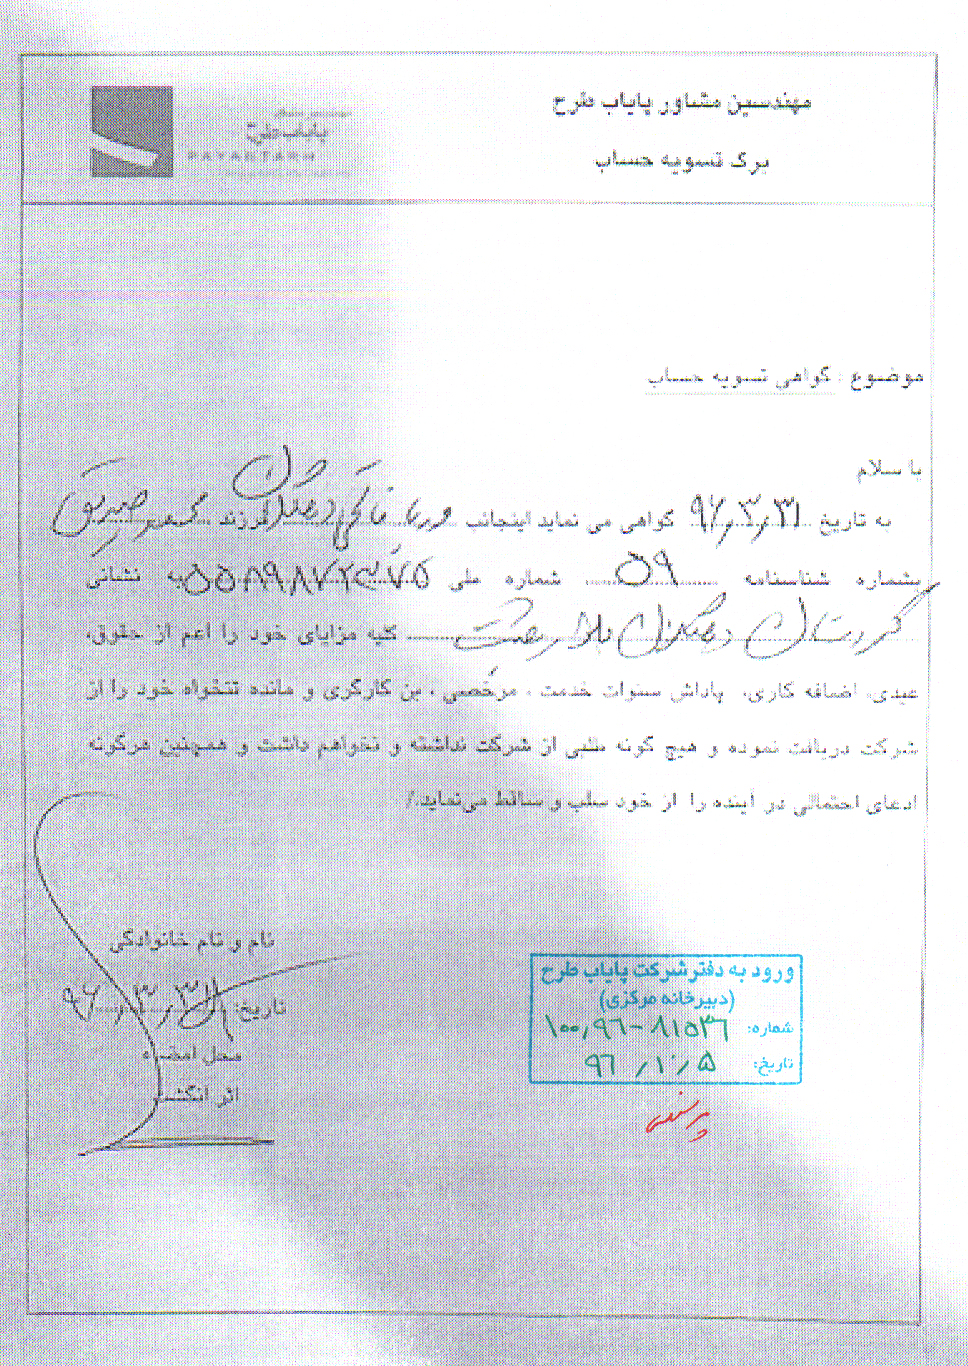 مهندسین مشاور پایاب طرح
برگ تسویه حساب
پایاب طرح
PAYAB TARH
موضوع : گواهی تسویه حساب
با سلام
به تاریخ ۹۶٫۳٫۳۱ گواهی می نماید اینجانب فرزند محمد صدیق
بشماره شناسنامه ۵۹ شماره ملی به نشانی
کردستان کلیه مزایای خود را اعم از حقوق،
عیدی، اضافه کاری، پاداش سنوات خدمت ، مرخصی ، بن کارگری و مانده تنخواه خود را از
شرکت دریافت نموده و هیچ گونه طلبی از شرکت نداشته و نخواهم داشت و همچنین هرگونه
ادعای احتمالی در آینده را از خود سلب و ساقط می‌نماید./
نام و نام خانوادگی
تاریخ: ۹۶٫۳٫۳۱
محل امضاء
اثر انگشت
ورود به دفتر شرکت پایاب طرح
(دبیرخانه مرکزی)
شماره: ۱۰۰٫۹۶-۸۱۵۳۶
تاریخ: ۹۶٫۱۰٫۵